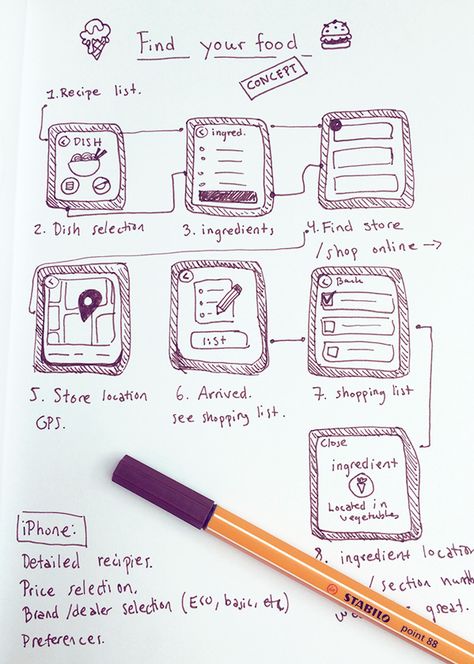 Find your food
CONCEPT
1. Recipe list.
DISH
ingred.
2. Dish selection
3. ingredients
4. Find store
/shop online →
list
Back
5. Store location
GPS.
6. Arrived.
see shopping list.
7. shopping list
Close
ingredient
Located in
vegetables
iPhone:
Detailed recipies.
Price selection.
Brand /dealer selection (Eco, basic, etc)
Preferences.
8. ingredient location
/ section
great.
STABILO
point 88